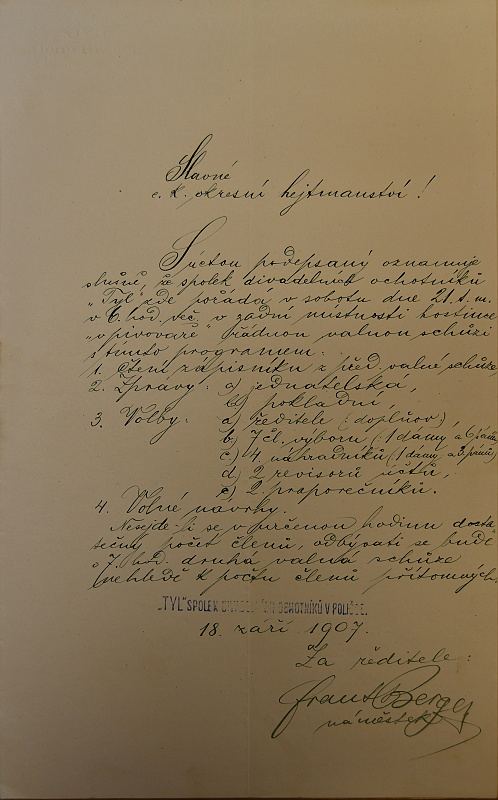 Slavné
c. k. okresní hejtmanství!
S úctou podepsaný oznamuje
slušně, že spolek divadelních ochotníků
„Tyl" zde pořádá v sobotu dne 21. t. m.
v 6. hod. več. v zadní místnosti hostince
„v pivovaře" řádnou valnou schůzi
s tímto programem:
1. Čtení zápisníku z před. valné schůze
2. Zprávy: a) jednatelská,
b) pokladní,
3. Volby: a) ředitele (: doplňov),
b) 7 čl. výboru (: 1 dámy a 6 pánů
c) 4 náhradníků (1 dámy a 3 pánů)
d) 2 revisorů účtů,
e) 2 praporečníků.
4. Volné návrhy.
Nesejde-li se v určenou hodinu dosta
tečný počet členů, odbývati se bude
o 7. hod. druhá valná schůze
nehledě k počtu členů přítomných.
„TYL" SPOLEK DIVADELNÍCH OCHOTNÍKŮ V POLIČCE.
18. září 1907.
Za ředitele:
Frant Berger
náměstek